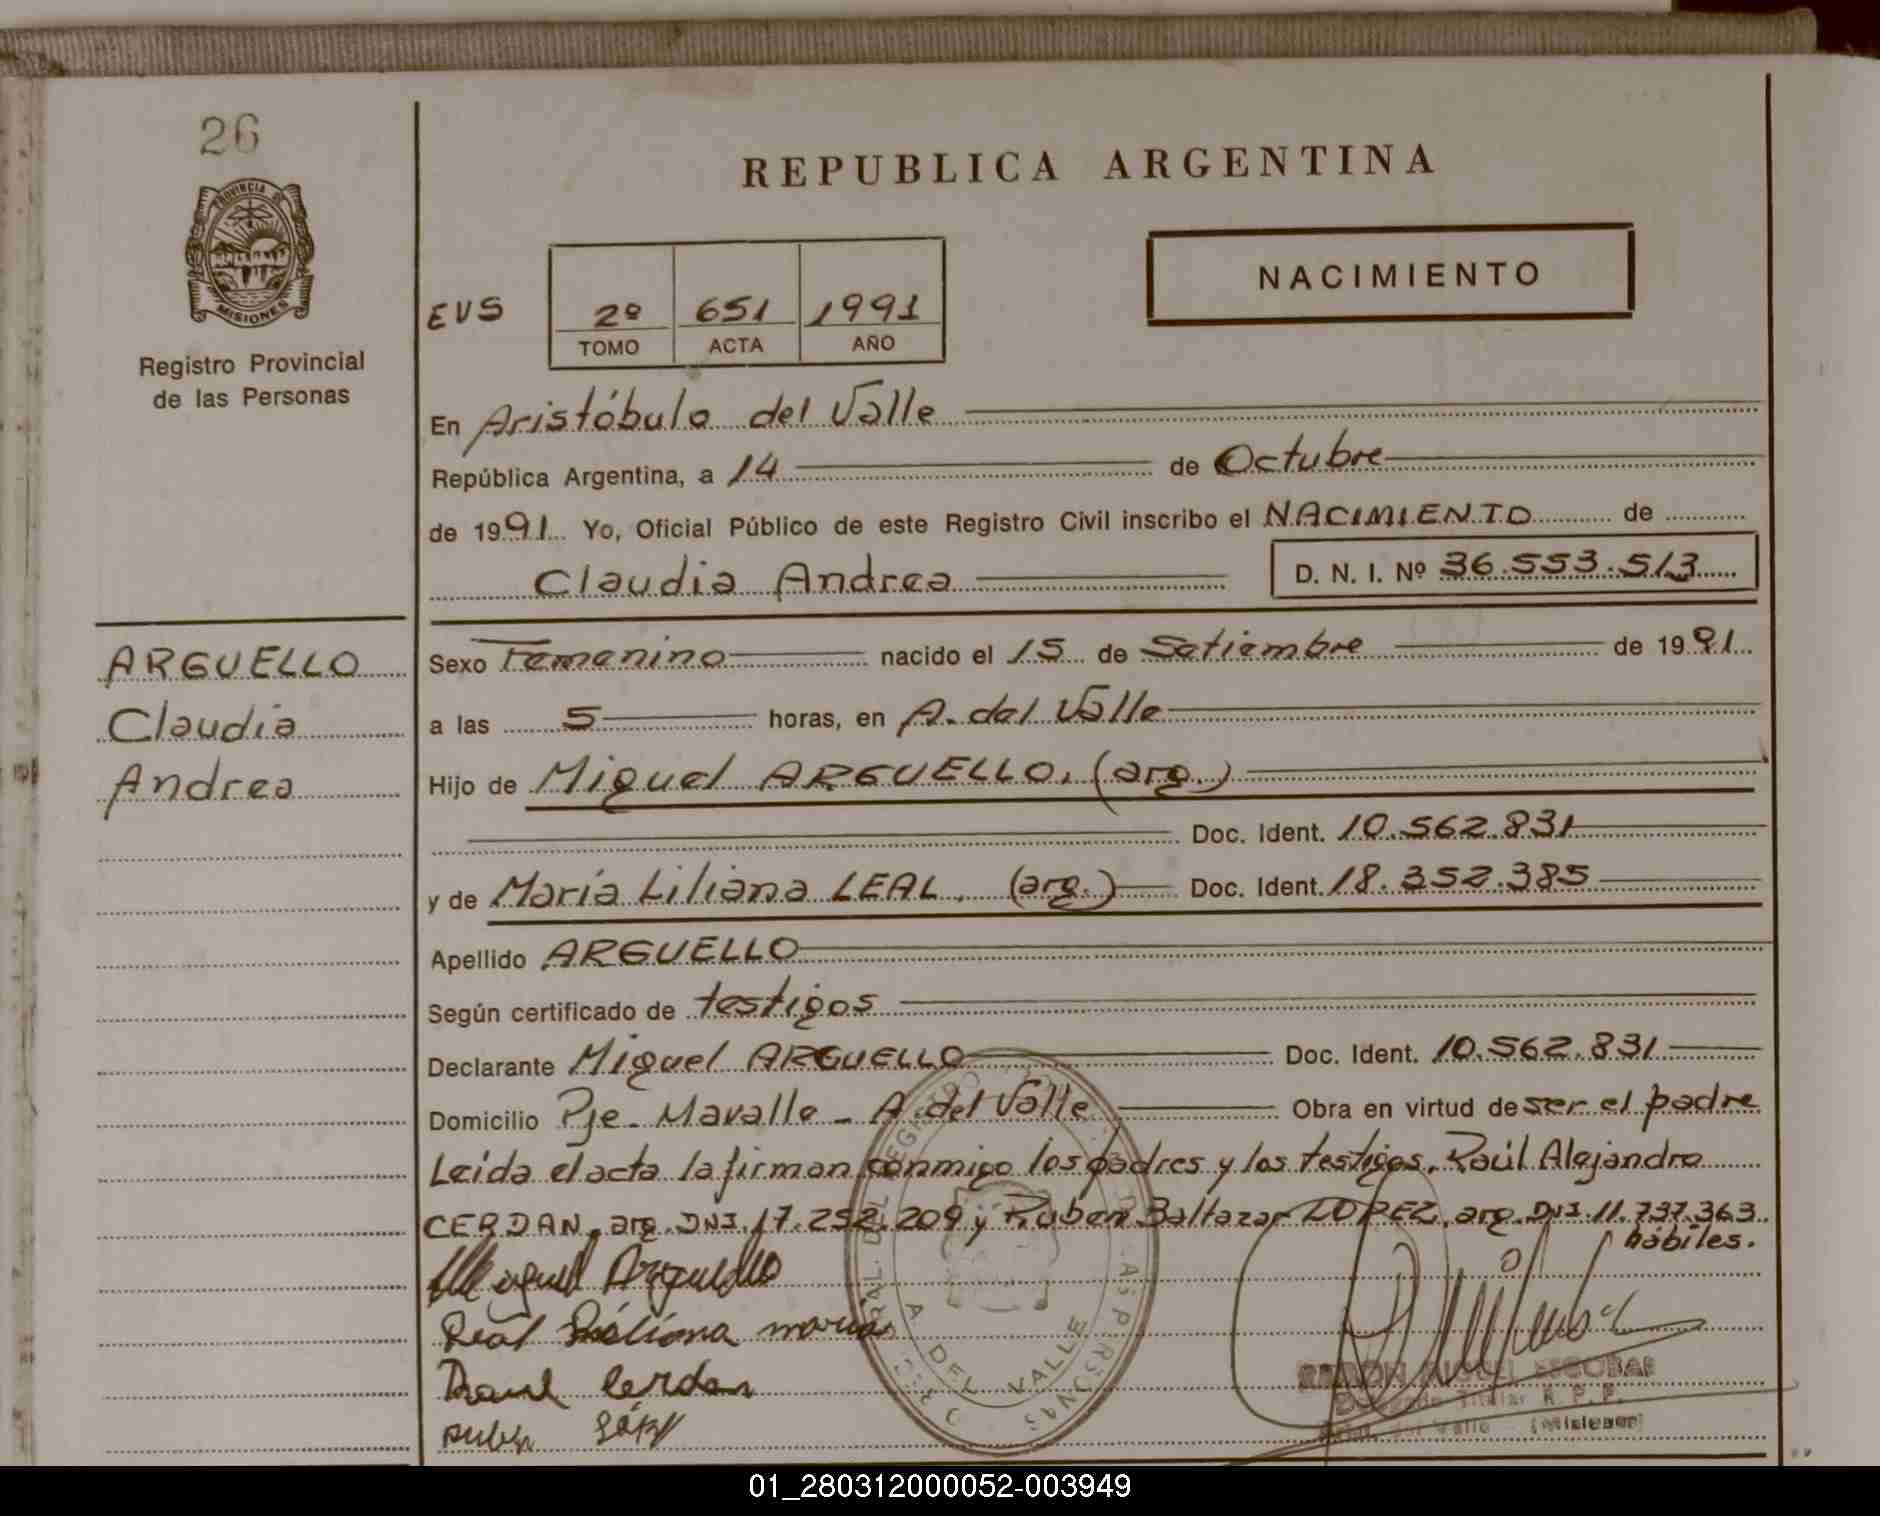 26
PROVINCIA DE
MISIONES
Registro Provincial
de las Personas
REPUBLICA ARGENTINA
NACIMIENTO
EVS
2º 651 1991
TOMO ACTA AÑO
En Aristóbulo del Valle
República Argentina, a 14 de Octubre
de 1991 Yo, Oficial Público de este Registro Civil inscribo el NACIMIENTO de
Claudia Andrea D. N. I. Nº 36.553.513
ARGUELLO
Claudia
Andrea
Sexo Femenino nacido el 15 de Setiembre de 1991
a las 5 horas, en A. del Valle
Hijo de Miguel ARGUELLO, (arg.)
Doc. Ident. 10.562.831
y de María Liliana LEAL, (arg.) Doc. Ident. 18.352.385
Apellido ARGUELLO
Según certificado de testigos
Declarante Miguel ARGUELLO Doc. Ident. 10.562.831
Domicilio Pje. Mavalle - A. del Valle Obra en virtud de ser el padre
Leída el acta la firman conmigo los padres y los testigos, Raúl Alejandro
CERDAN, arg. DNI. 17.252.209 y Ruben Baltazar LOPEZ, arg. DNI. 11.737.363
hábiles.
Miguel Arguello
Leal Liliana maria
Raul Cerdan
A DEL VALLE
RAMON MIGUEL ESCOBAR
Titular R. P. P.
del Valle (Misiones)
01_280312000052-003949